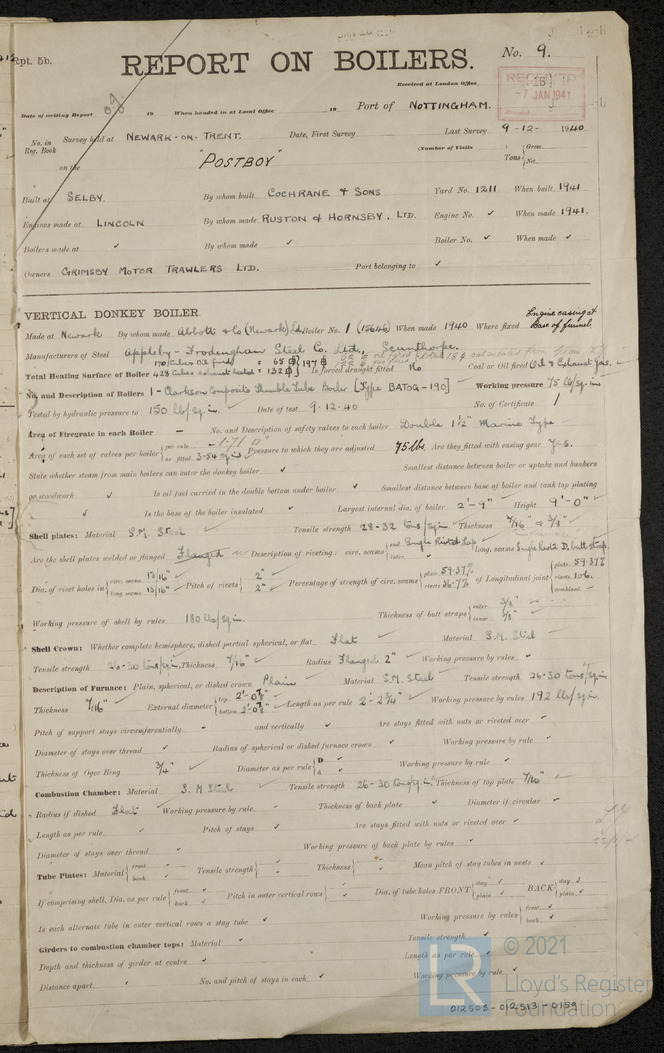 Rpt. 5b.
REPORT ON BOILERS. No. 9.
Received at London Office
RECEIVED
7 JAN 1941
Date of writing Report 19 When handed in at Local Office 19 Port of NOTTINGHAM.
No. in Reg. Book Survey held at NEWARK-ON-TRENT. Date, First Survey Last Survey 9-12-1940
(Number of Visits
on the "POSTBOY" Tons { Gross Net
Built at SELBY. By whom built COCHRANE & SONS Yard No. 1211 When built 1941
Engines made at LINCOLN By whom made RUSTON & HORNSBY. LTD. Engine No. ✓ When made 1941.
Boilers made at ✓ By whom made ✓ Boiler No. ✓ When made ✓
Owners GRIMSBY MOTOR TRAWLERS LTD. Port belonging to ✓
VERTICAL DONKEY BOILER.
Made at Newark By whom made Abbott & Co (Newark) Ltd Boiler No. 1 (15646) When made 1940 Where fixed Engine casing at Base of funnel.
Manufacturers of Steel Appleby-Frodingham Steel Co. Ltd., Scunthorpe.
Total Heating Surface of Boiler Is forced draught fitted No Coal or Oil fired Oil & Exhaust Gas.
No. and Description of Boilers 1 - Clarkson Composite Thimble Tube Boiler [Type BATOG-190] Working pressure 75 lb/sq.in
Tested by hydraulic pressure to 150 lb/sq.in. Date of test 9.12.40 No. of Certificate 1
Area of Firegrate in each Boiler - No. and Description of safety valves to each boiler Double 1½" Marine Type
Area of each set of valves per boiler { per rule 1.71 as fitted 3.54 sq in Pressure to which they are adjusted 75 lbs. Are they fitted with easing gear Yes.
State whether steam from main boilers can enter the donkey boiler ✓ Smallest distance between boiler or uptake and bunkers
or woodwork ✓ Is oil fuel carried in the double bottom under boiler ✓ Smallest distance between base of boiler and tank top plating
✓ Is the base of the boiler insulated ✓ Largest internal dia. of boiler 2'-9" Height 9'-0"
Shell plates: Material S.M. Steel Tensile strength 28-32 tons/sq.in. Thickness 7/16" & 3/8"
Are the shell plates welded or flanged Flanged Description of riveting: circ. seams { end Single Riv'ted Lap inter. ✓ long. seams Single Riv'td D. butt strap.
Dia. of rivet holes in { circ. seams 13/16" long. seams 13/16" Pitch of rivets { 2" 2" Percentage of strength of circ. seams { plate 59.37% rivets 36.7% of Longitudinal joint { plate 59.37% rivets 106. combined
Working pressure of shell by rules 180 lb/sq.in. Thickness of butt straps { outer 3/8" inner 3/8"
Shell Crown: Whether complete hemisphere, dished partial spherical, or flat Flat Material S.M. Steel
Tensile strength 26-30 tons/sq.in. Thickness 7/16" Radius Flanged 2" Working pressure by rules
Description of Furnace: Plain, spherical, or dished crown Plain Material S.M. Steel Tensile strength 26-30 tons/sq.in
Thickness 7/16" External diameter { top 2'-0⅞" bottom 2'-0⅞" Length as per rule 2'-2¾" Working pressure by rules 192 lbs/sq.in.
Pitch of support stays circumferentially ✓ and vertically ✓ Are stays fitted with nuts or riveted over ✓
Diameter of stays over thread ✓ Radius of spherical or dished furnace crown ✓ Working pressure by rule ✓
Thickness of Ogee Ring 3/4" Diameter as per rule { D ✓ d ✓ Working pressure by rule ✓
Combustion Chamber: Material S.M Steel Tensile strength 26-30 tons/sq.in. Thickness of top plate 7/16"
Radius if dished Flat Working pressure by rule Thickness of back plate ✓ Diameter if circular ✓
Length as per rule ✓ Pitch of stays ✓ Are stays fitted with nuts or riveted over ✓
Diameter of stays over thread ✓ Working pressure of back plate by rules ✓
Tube Plates: Material { front ✓ back ✓ Tensile strength { ✓ Thickness { ✓ Mean pitch of stay tubes in nests ✓
If comprising shell, Dia. as per rule { front ✓ back ✓ Pitch in outer vertical rows { ✓ Dia. of tube holes FRONT { stay ✓ plain ✓ BACK { stay ✓ plain ✓
Is each alternate tube in outer vertical rows a stay tube ✓ Working pressure by rules { front ✓ back ✓
Girders to combustion chamber tops: Material ✓ Tensile strength ✓
Depth and thickness of girder at centre ✓ Length as per rule ✓
Distance apart ✓ No. and pitch of stays in each ✓ Working pressure by rule ✓
LR
© 2021
Lloyd's Register
Foundation
012508-012513-0159